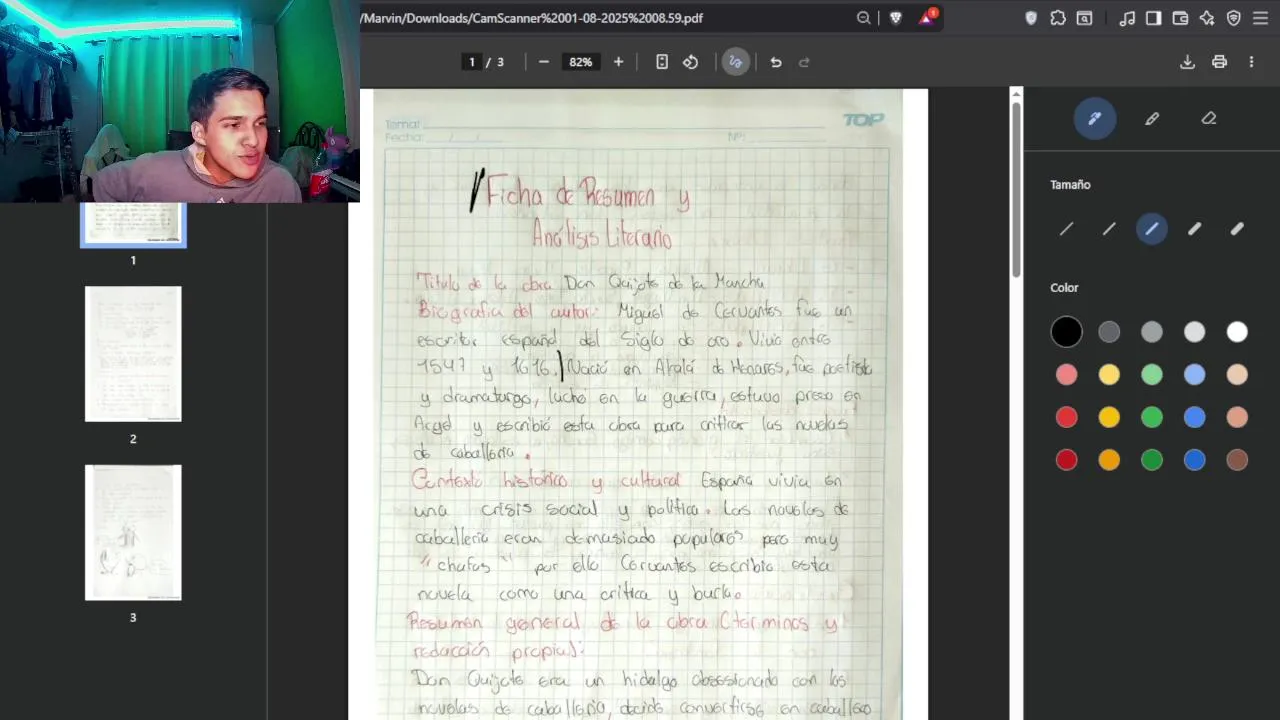 /Marvin/Downloads/CamScanner%2001-08-2025%2008.59.pdf
1 / 3
82%
Tema:
Fecha: / /
Nº:
TOP
Ficha de Resumen y
Análisis Literario
Título de la obra Don Quijote de la Mancha
Biografía del autor: Miguel de Cervantes fue un
escritor español del Siglo de oro. Vivió entre
1547 y 1616. Nació en Alcalá de Henares, fue poetista
y dramaturgo, lucho en la guerra, estuvo preso en
Argel y escribió esta obra para criticar las novelas
de caballeria.
Contexto histórico y cultural España vivia en
una crisis social y política. Las novelas de
caballeria eran demasiado populares pero muy
"chafas" por ello Cervantes escribio esta
novela como una critica y burla.
Resumen general de la obra (terminos y
redacción propias):
Don Quijote era un hidalgo obsesionado con las
novelas de caballeria, decide convertirse en caballero
1
2
3
Tamaño
Color
1